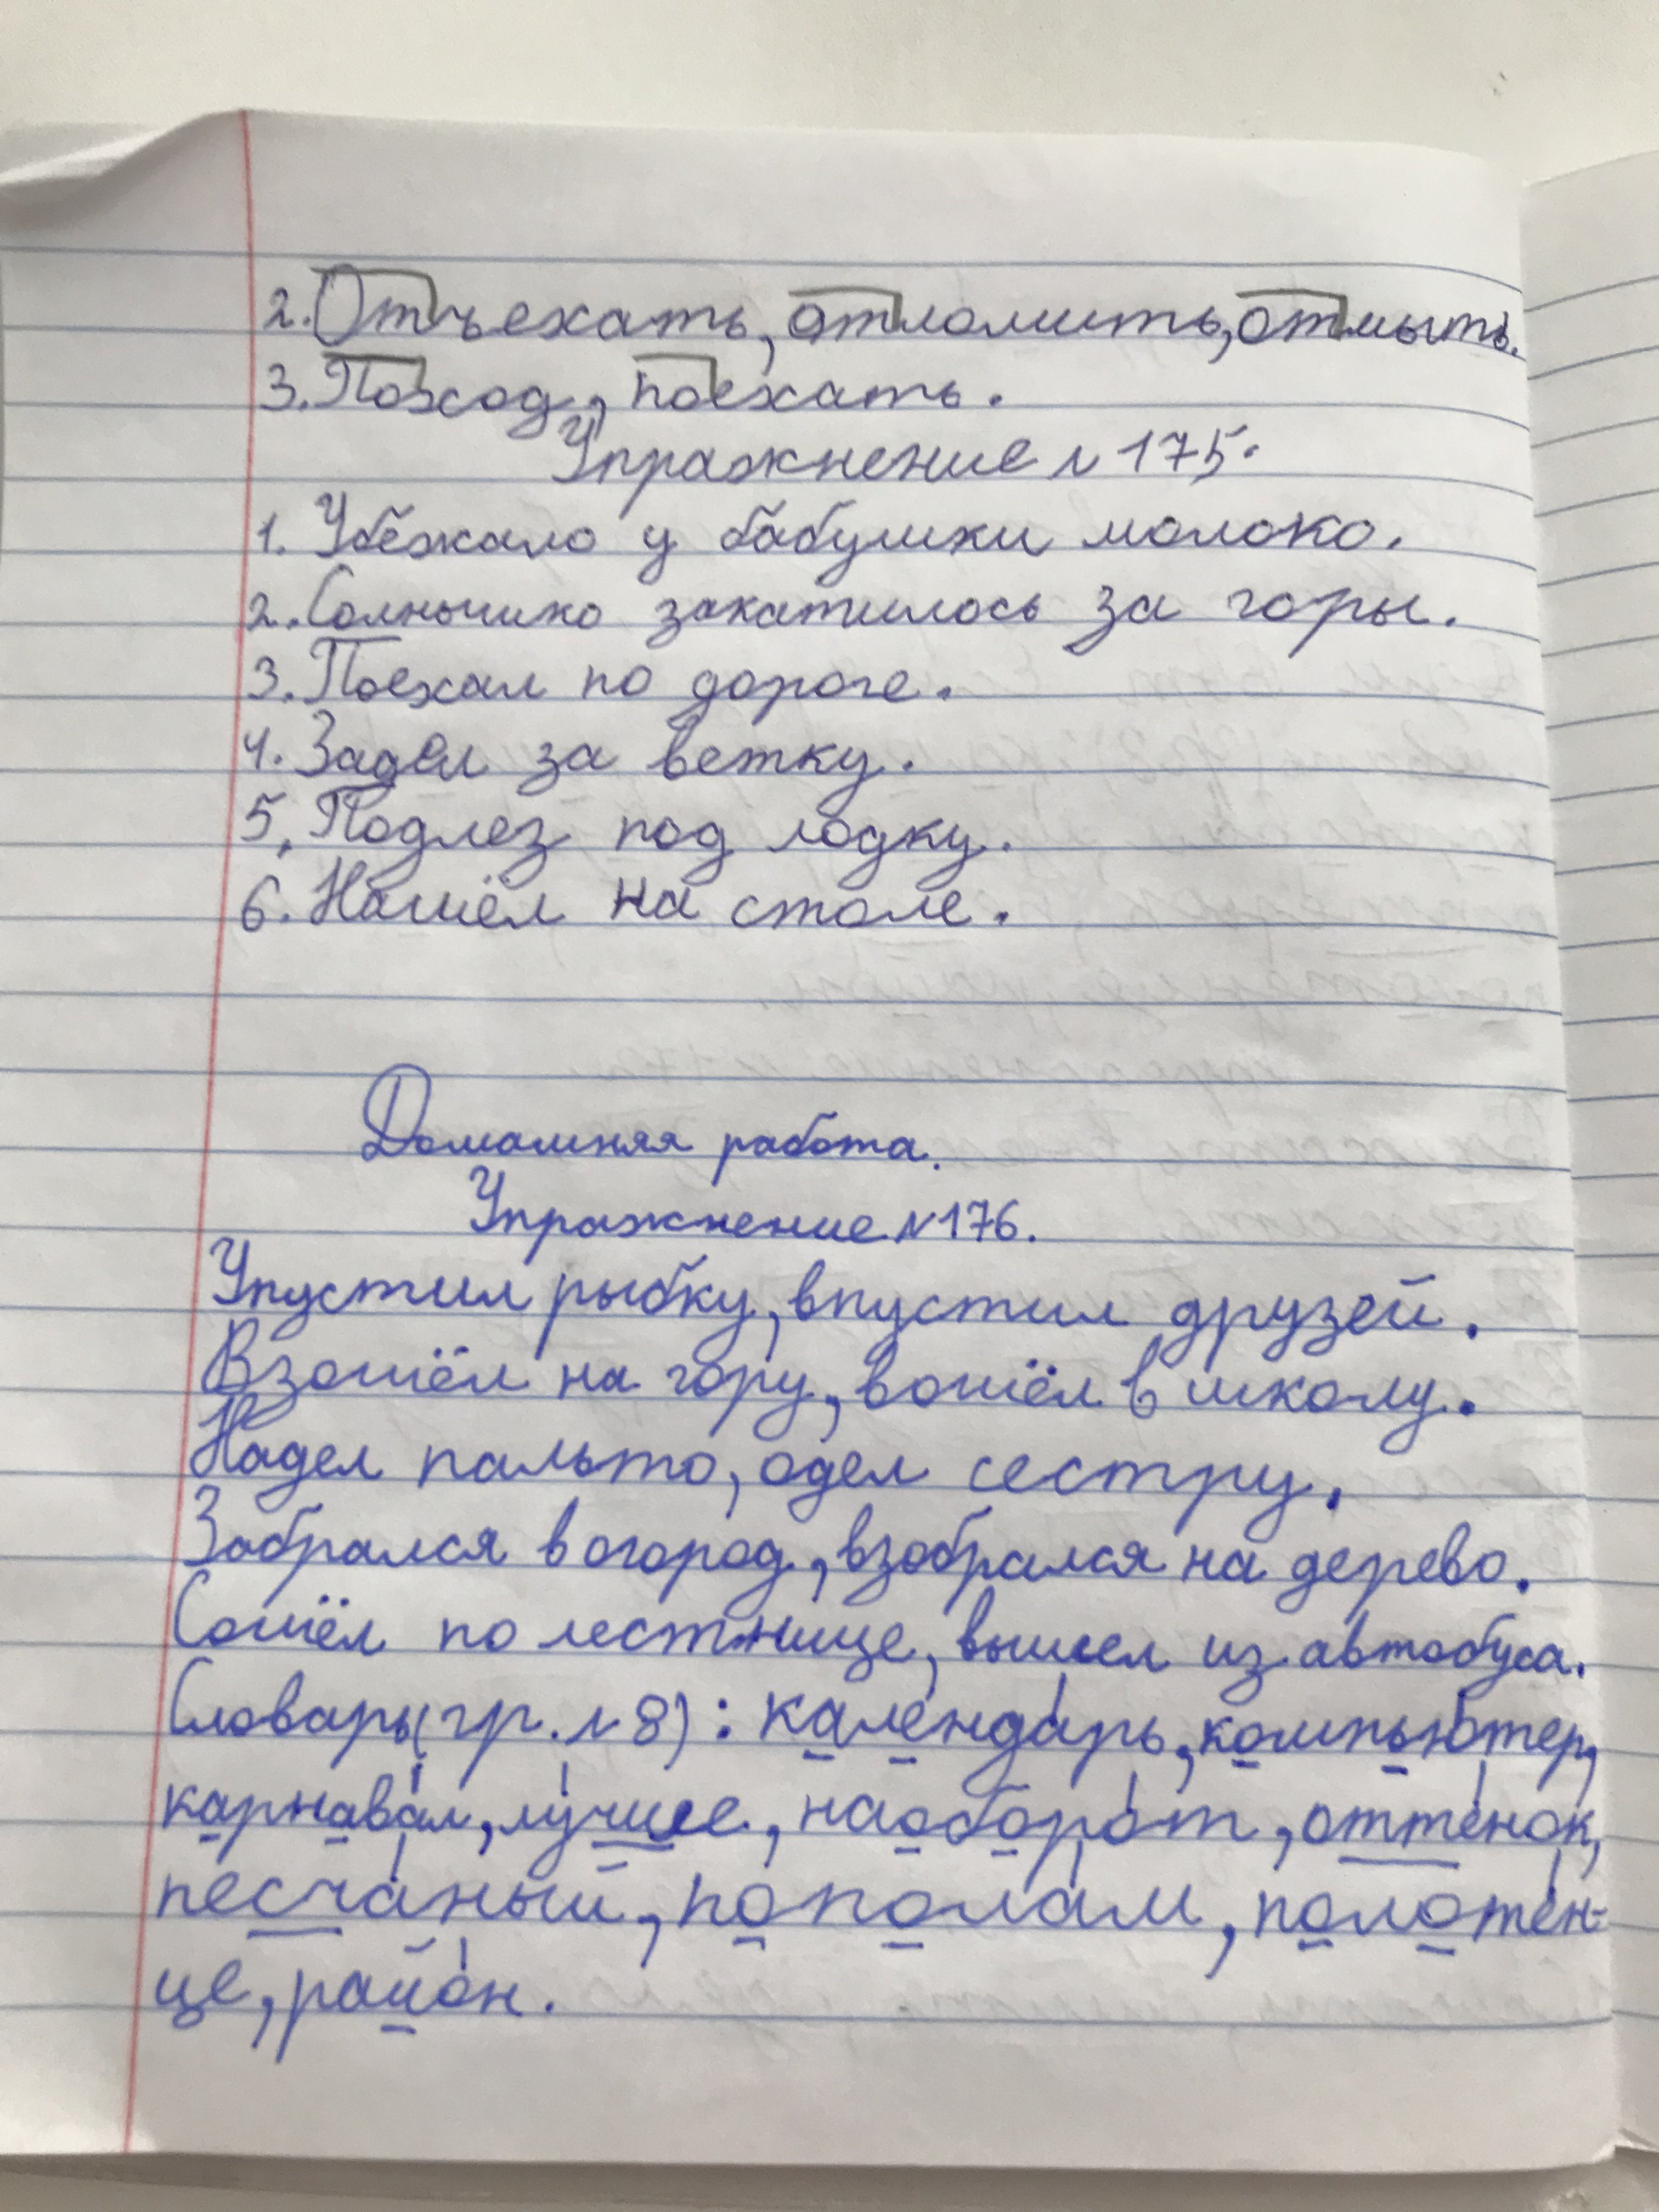 2. Отъехать, отломить, отмыть.
3. Поход, поехать.
Упражнение №175.
1. Убежало у бабушки молоко.
2. Солнышко закатилось за горы.
3. Поехал по дороге.
4. Задел за ветку.
5. Подлез под лодку.
6. Нашёл на столе.
Домашняя работа.
Упражнение №176.
Упустил рыбку, впустил друзей.
Взошёл на гору, вошёл в школу.
Надел пальто, одел сестру.
Забрался в огород, взобрался на дерево.
Сошёл по лестнице, вышел из автобуса.
Словарь(гр. №8): календа́рь, компью́тер,
карнава́л, лу́чшее, наоборо́т, отте́нок,
песча́ный, попола́м, полоте́н-
це, райо́н.